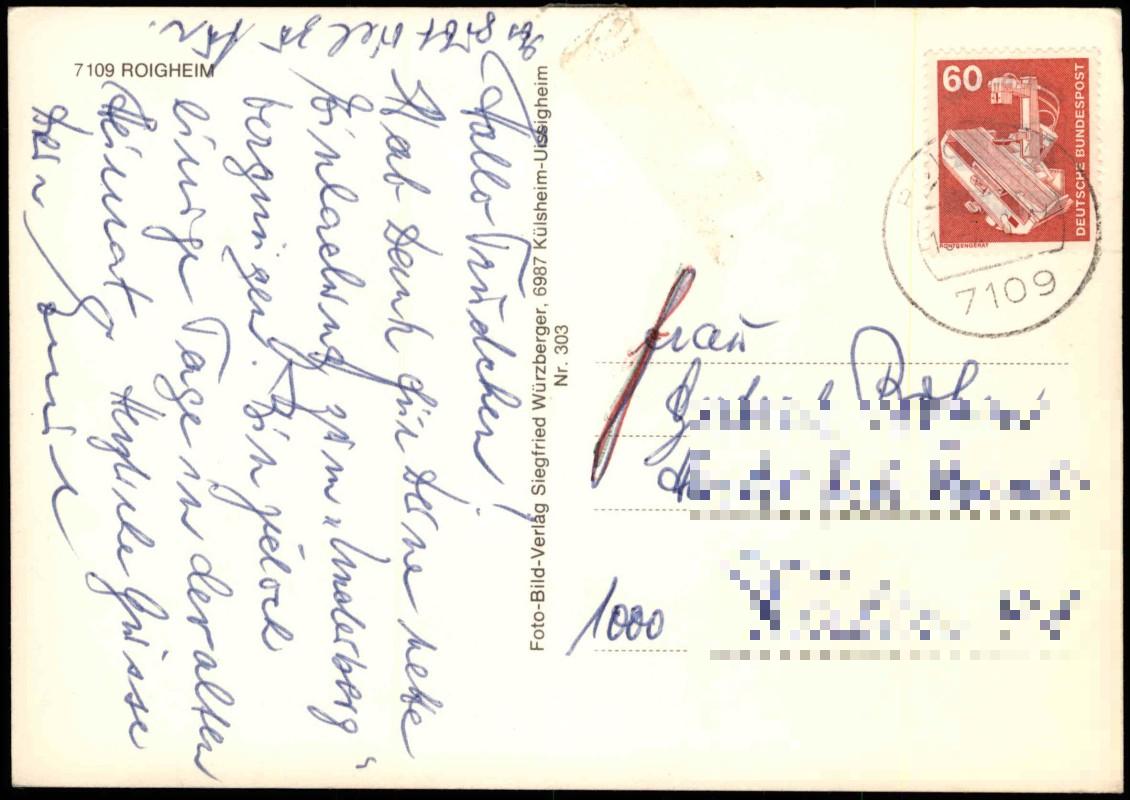 7109 ROIGHEIM
Hallo Trudchen!
Hab Dank für Deine nette
Einladung zum „Underberg“
vergnügen. Bin jedoch
einige Tage in der alten
Heimat. Herzliche Grüsse
Dein
Es gibt viel zu
Foto-Bild-Verlag Siegfried Würzberger, 6987 Külsheim-Uissigheim
Nr. 303
60
DEUTSCHE BUNDESPOST
RÖNTGENGERÄT
7109
Frau
1000